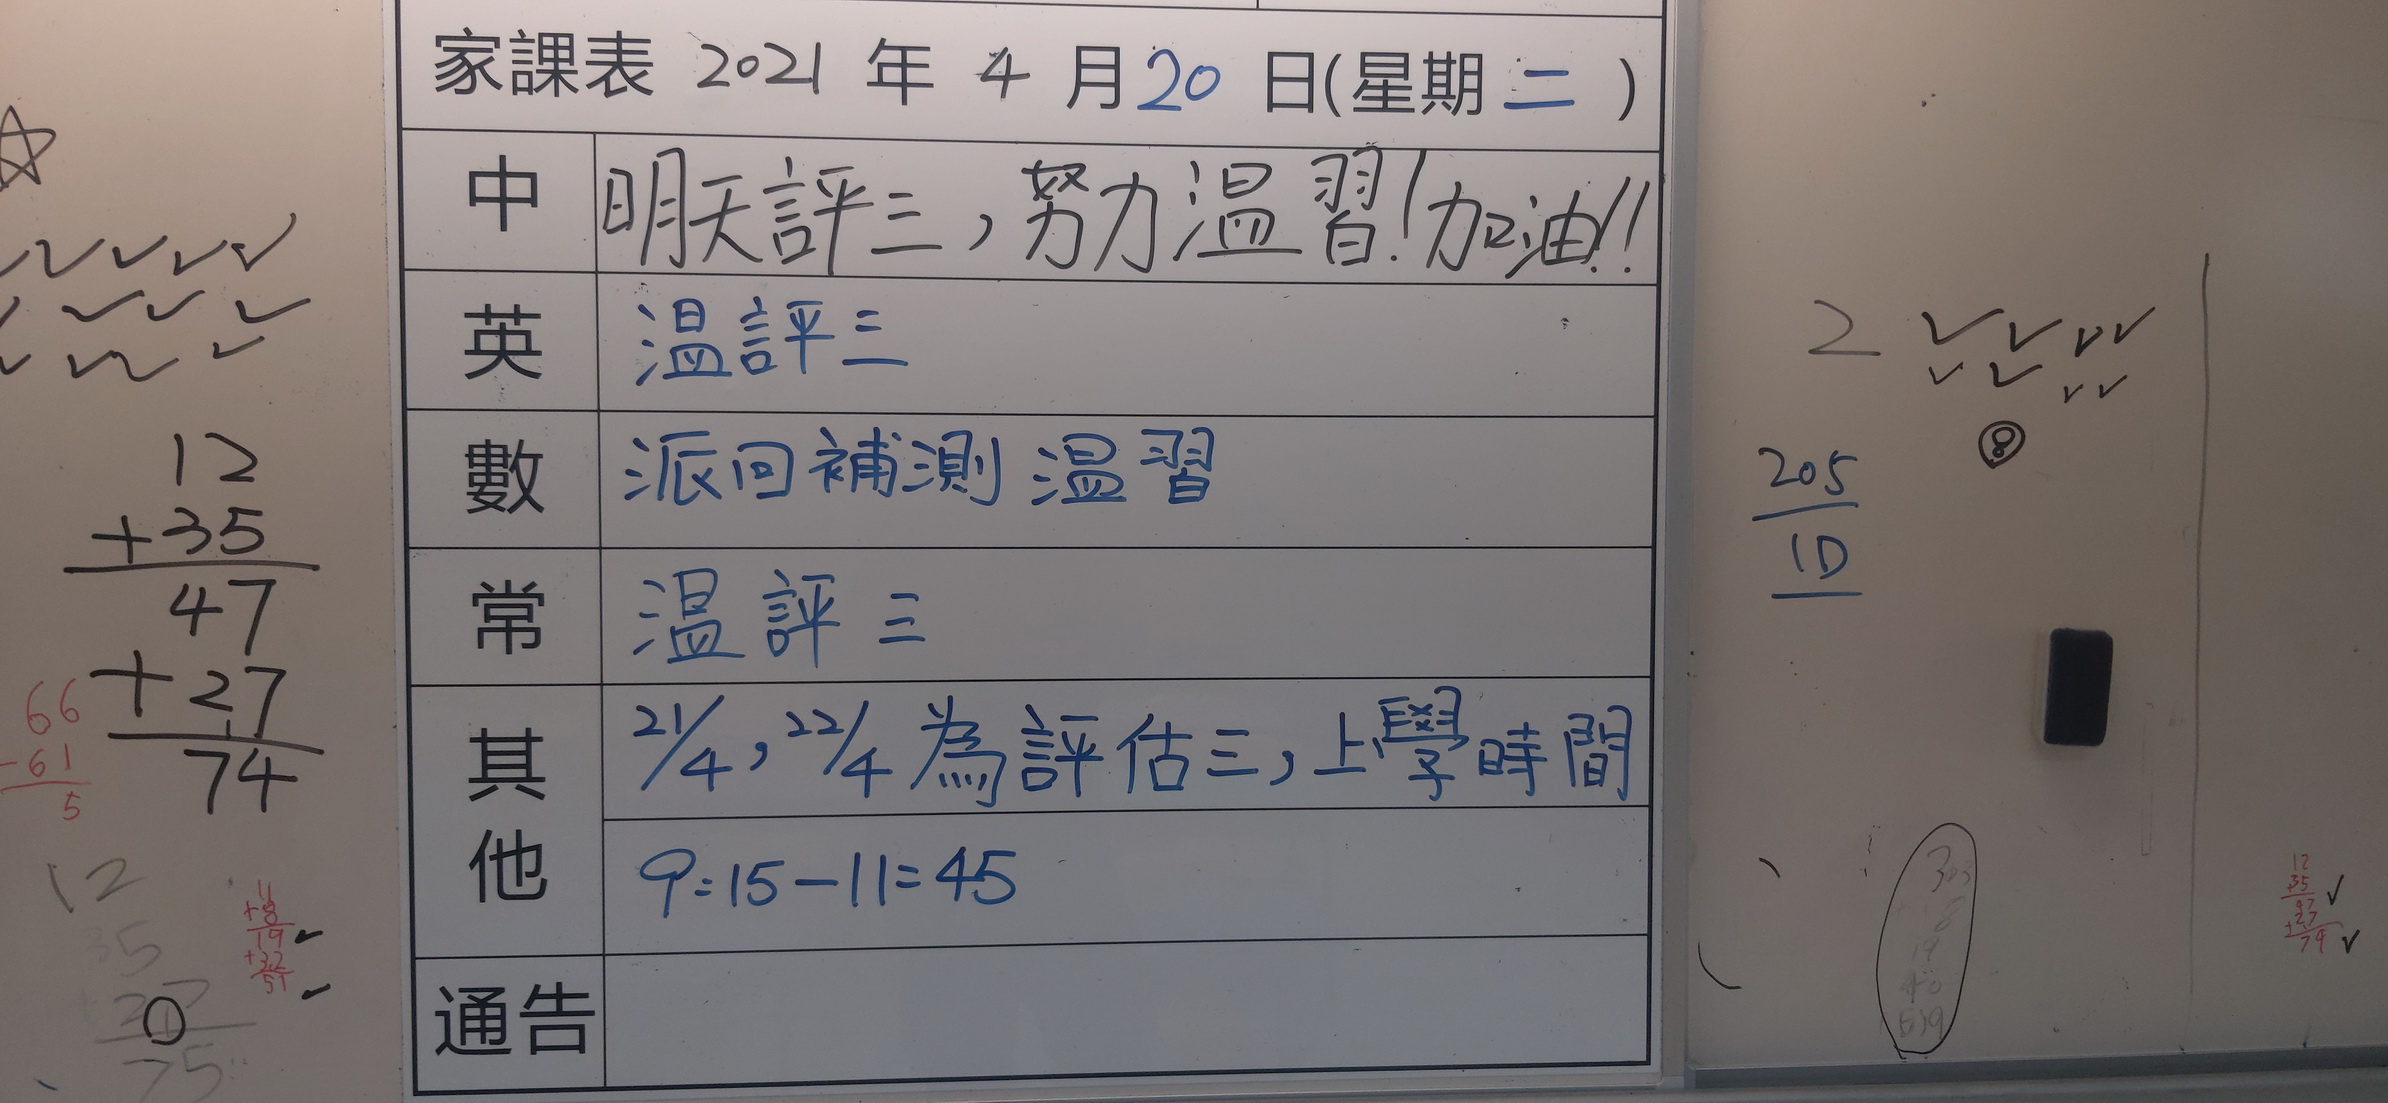 家課表 2021 年 4 月 20 日(星期 二 )
中 明天評三，努力溫習！加油!!
英 溫評三
數 派回補測 溫習
常 溫評三
其他 21/4，22/4 為評估三，上學時間
9:15-11:45
通告
12
+35
47
+27
74
66
-61
5
12
35
75
19
+32
51
2
8
205
1D
12
35
47
+27
74